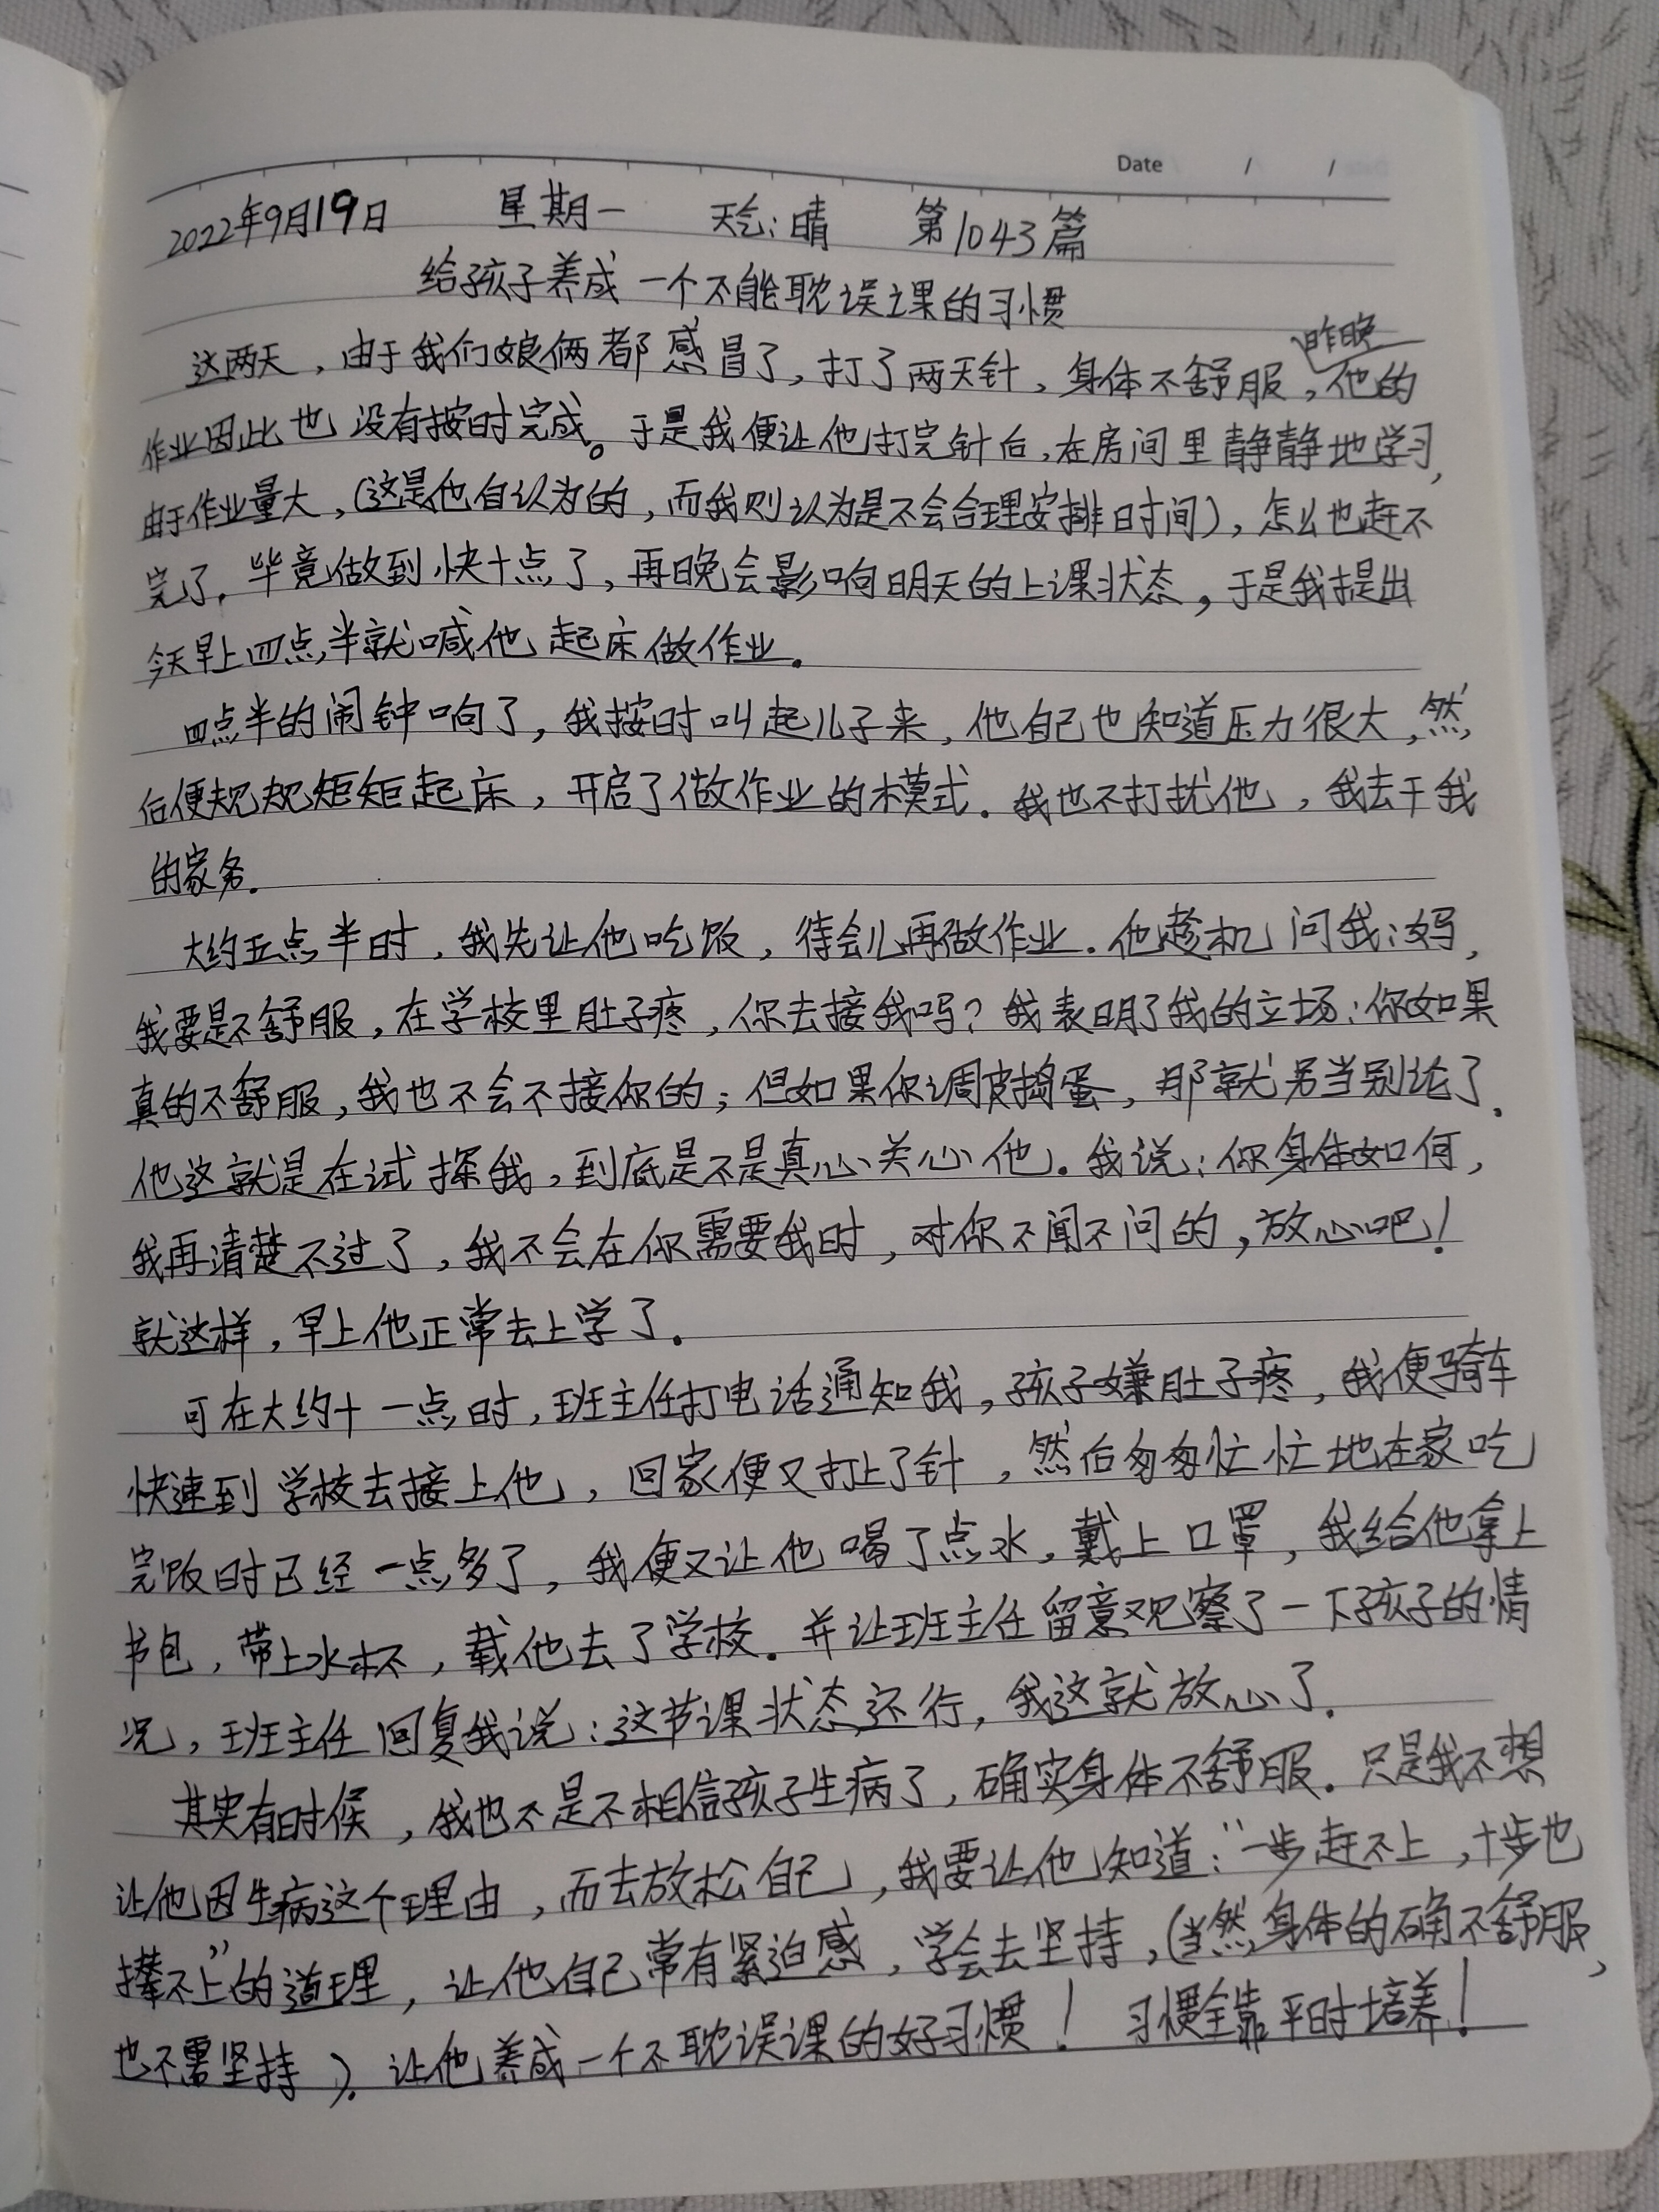 Date / /
2022年9月19日 星期一 天气:晴 第1043篇
给孩子养成一个不能耽误课的习惯
这两天,由于我们娘俩都感冒了,打了两天针,身体不舒服,昨晚他的
作业因此也没有按时完成。于是我便让他打完针后,在房间里静静地学习,
由于作业量大,(这是他自认为的,而我则认为是不会合理安排时间),怎么也赶不
完了。毕竟做到快十点了,再晚会影响明天的上课状态,于是我提出
今天早上四点半就喊他起床做作业。
四点半的闹钟响了,我按时叫起儿子来,他自己也知道压力很大,然
后便规规矩矩起床,开启了做作业的模式。我也不打扰他,我去干我
的家务。
大约五点半时,我先让他吃饭,待会儿再做作业。他趁机问我:妈,
我要是不舒服,在学校里肚子疼,你去接我吗?我表明了我的立场:你如果
真的不舒服,我也不会不接你的;但如果你调皮捣蛋,那就另当别论了。
他这就是在试探我,到底是不是真心关心他。我说:你身体如何,
我再清楚不过了,我不会在你需要我时,对你不闻不问的,放心吧!
就这样,早上他正常去上学了。
可在大约十一点时,班主任打电话通知我,孩子嫌肚子疼,我便骑车
快速到学校去接上他,回家便又打上了针,然后匆匆忙忙地在家吃
完饭时已经一点多了,我便又让他喝了点水,戴上口罩,我给他拿上
书包,带上水杯,载他去了学校。并让班主任留意观察了一下孩子的情
况,班主任回复我说:这节课状态还行,我这就放心了。
其实有时候,我也不是不相信孩子生病了,确实身体不舒服。只是我不想
让他因生病这个理由,而去放松自己,我要让他知道:“一步赶不上,十步也
撵不上”的道理,让他自己常有紧迫感,学会去坚持,(当然身体的确不舒服,
也不需坚持)。让他养成一个不耽误课的好习惯!习惯全靠平时培养!